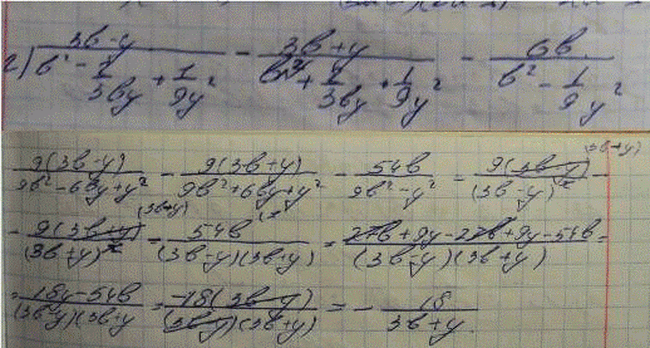 2) (3b-y)/(b² - 2/3by + 1/9y²) - (3b+y)/(b² + 2/3by + 1/9y²) - 6b/(b² - 1/9y²)
9(3b-y)/(9b²-6by+y²) - 9(3b+y)/(9b²+6by+y²) - 54b/(9b²-y²) = 9(3b-y)/(3b-y)² (3b+y) -
- 9(3b+y)/(3b+y)² (3b+y) - 54b/((3b-y)(3b+y)) = (27b+9y-27b+9y-54b)/((3b-y)(3b+y)) =
= (18y-54b)/((3b-y)(3b+y) = -18(3b-y)/((3b-y)(3b+y)) = - 18/(3b+y)